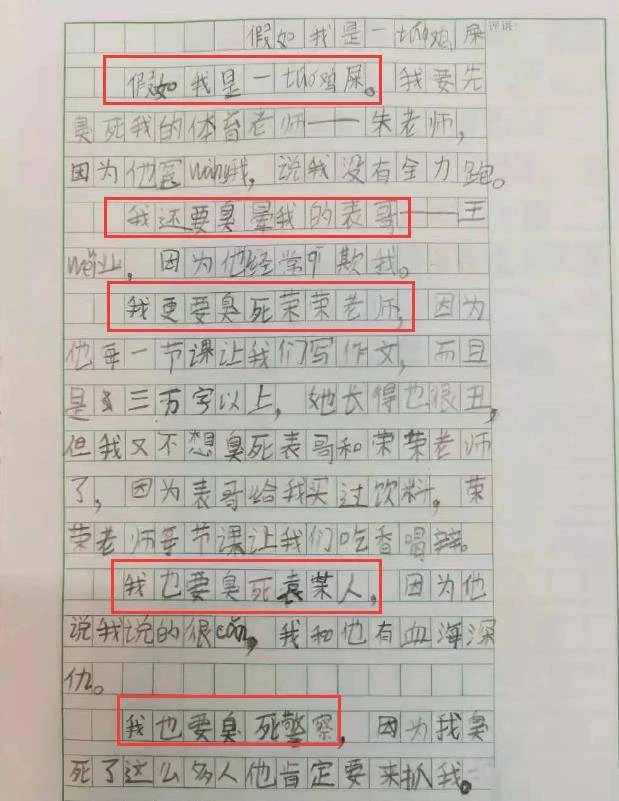 评语:
假如我是一坨鸡屎
假如我是一坨鸡屎。我要先
臭死我的体育老师——朱老师,
因为他冤wang我,说我没有全力跑。
我还要臭晕我的表哥——王
业,因为他经常欺我。
我更要臭死荣荣老师,因为
他每一节课让我们写作文,而且
是三万字以上,她长得也很丑,
但我又不想臭死表哥和荣荣老师
了,因为表哥给我买过饮料,荣
荣老师每节课让我们吃香喝辣。
我也要臭死袁某人,因为他
说我说的很,我和他有血海深
仇。
我也要臭死警察,因为我臭
死了这么多人他肯定要来抓我。